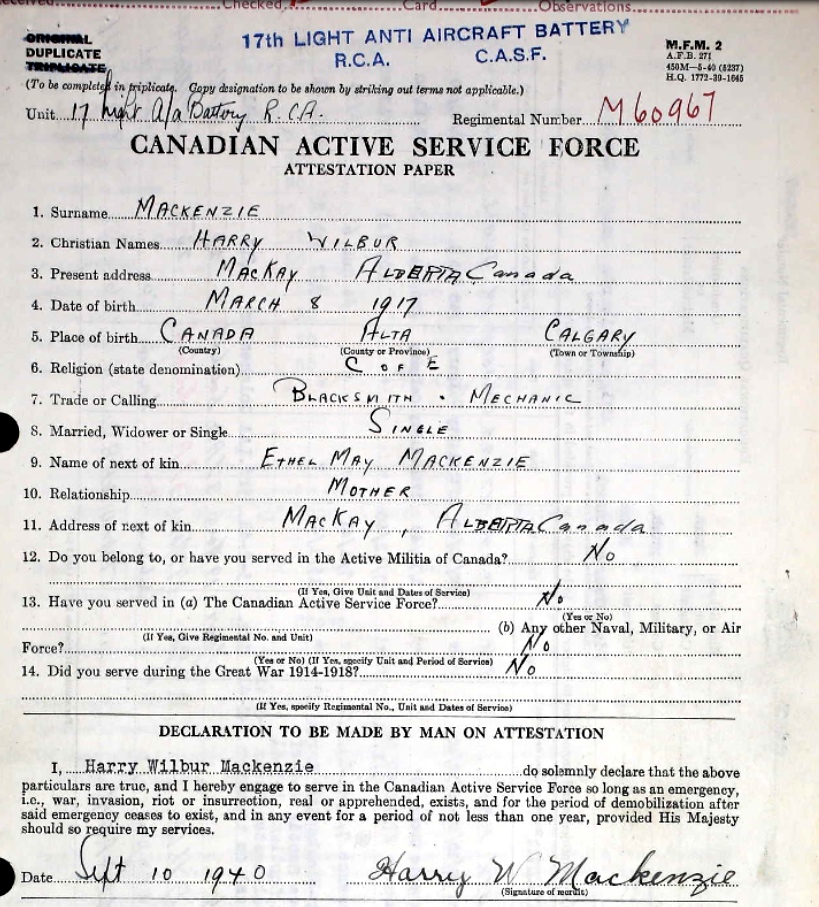 Checked Card Observations
17th LIGHT ANTI AIRCRAFT BATTERY
R.C.A. C.A.S.F.
ORIGINAL
DUPLICATE
TRIPLICATE
M.F.M. 2
A.F.B. 271
450M—5-40 (5237)
H.Q. 1772-39-1645
(To be completed in triplicate. Copy designation to be shown by striking out terms not applicable.)
Unit 17 Light A/a Battery R.C.A. Regimental Number M60967
CANADIAN ACTIVE SERVICE FORCE
ATTESTATION PAPER
1. Surname MACKENZIE
2. Christian Names HARRY WILBUR
3. Present address MACKAY ALBERTA Canada
4. Date of birth MARCH 8 1917
5. Place of birth CANADA ALTA CALGARY
(Country) (County or Province) (Town or Township)
6. Religion (state denomination) C OF E
7. Trade or Calling BLACKSMITH . MECHANIC
8. Married, Widower or Single SINGLE
9. Name of next of kin ETHEL MAY MACKENZIE
10. Relationship MOTHER
11. Address of next of kin MACKAY, ALBERTA Canada
12. Do you belong to, or have you served in the Active Militia of Canada? No
(If Yes, Give Unit and Dates of Service)
13. Have you served in (a) The Canadian Active Service Force? No
(Yes or No)
(b) Any other Naval, Military, or Air
(If Yes, Give Regimental No. and Unit)
Force? No
(Yes or No) (If Yes, specify Unit and Period of Service)
14. Did you serve during the Great War 1914-1918? No
(If Yes, specify Regimental No., Unit and Dates of Service)
DECLARATION TO BE MADE BY MAN ON ATTESTATION
I, Harry Wilbur Mackenzie do solemnly declare that the above
particulars are true, and I hereby engage to serve in the Canadian Active Service Force so long as an emergency,
i.e., war, invasion, riot or insurrection, real or apprehended, exists, and for the period of demobilization after
said emergency ceases to exist, and in any event for a period of not less than one year, provided His Majesty
should so require my services.
Date Sept 10 1940 Harry W Mackenzie
(Signature of recruit)